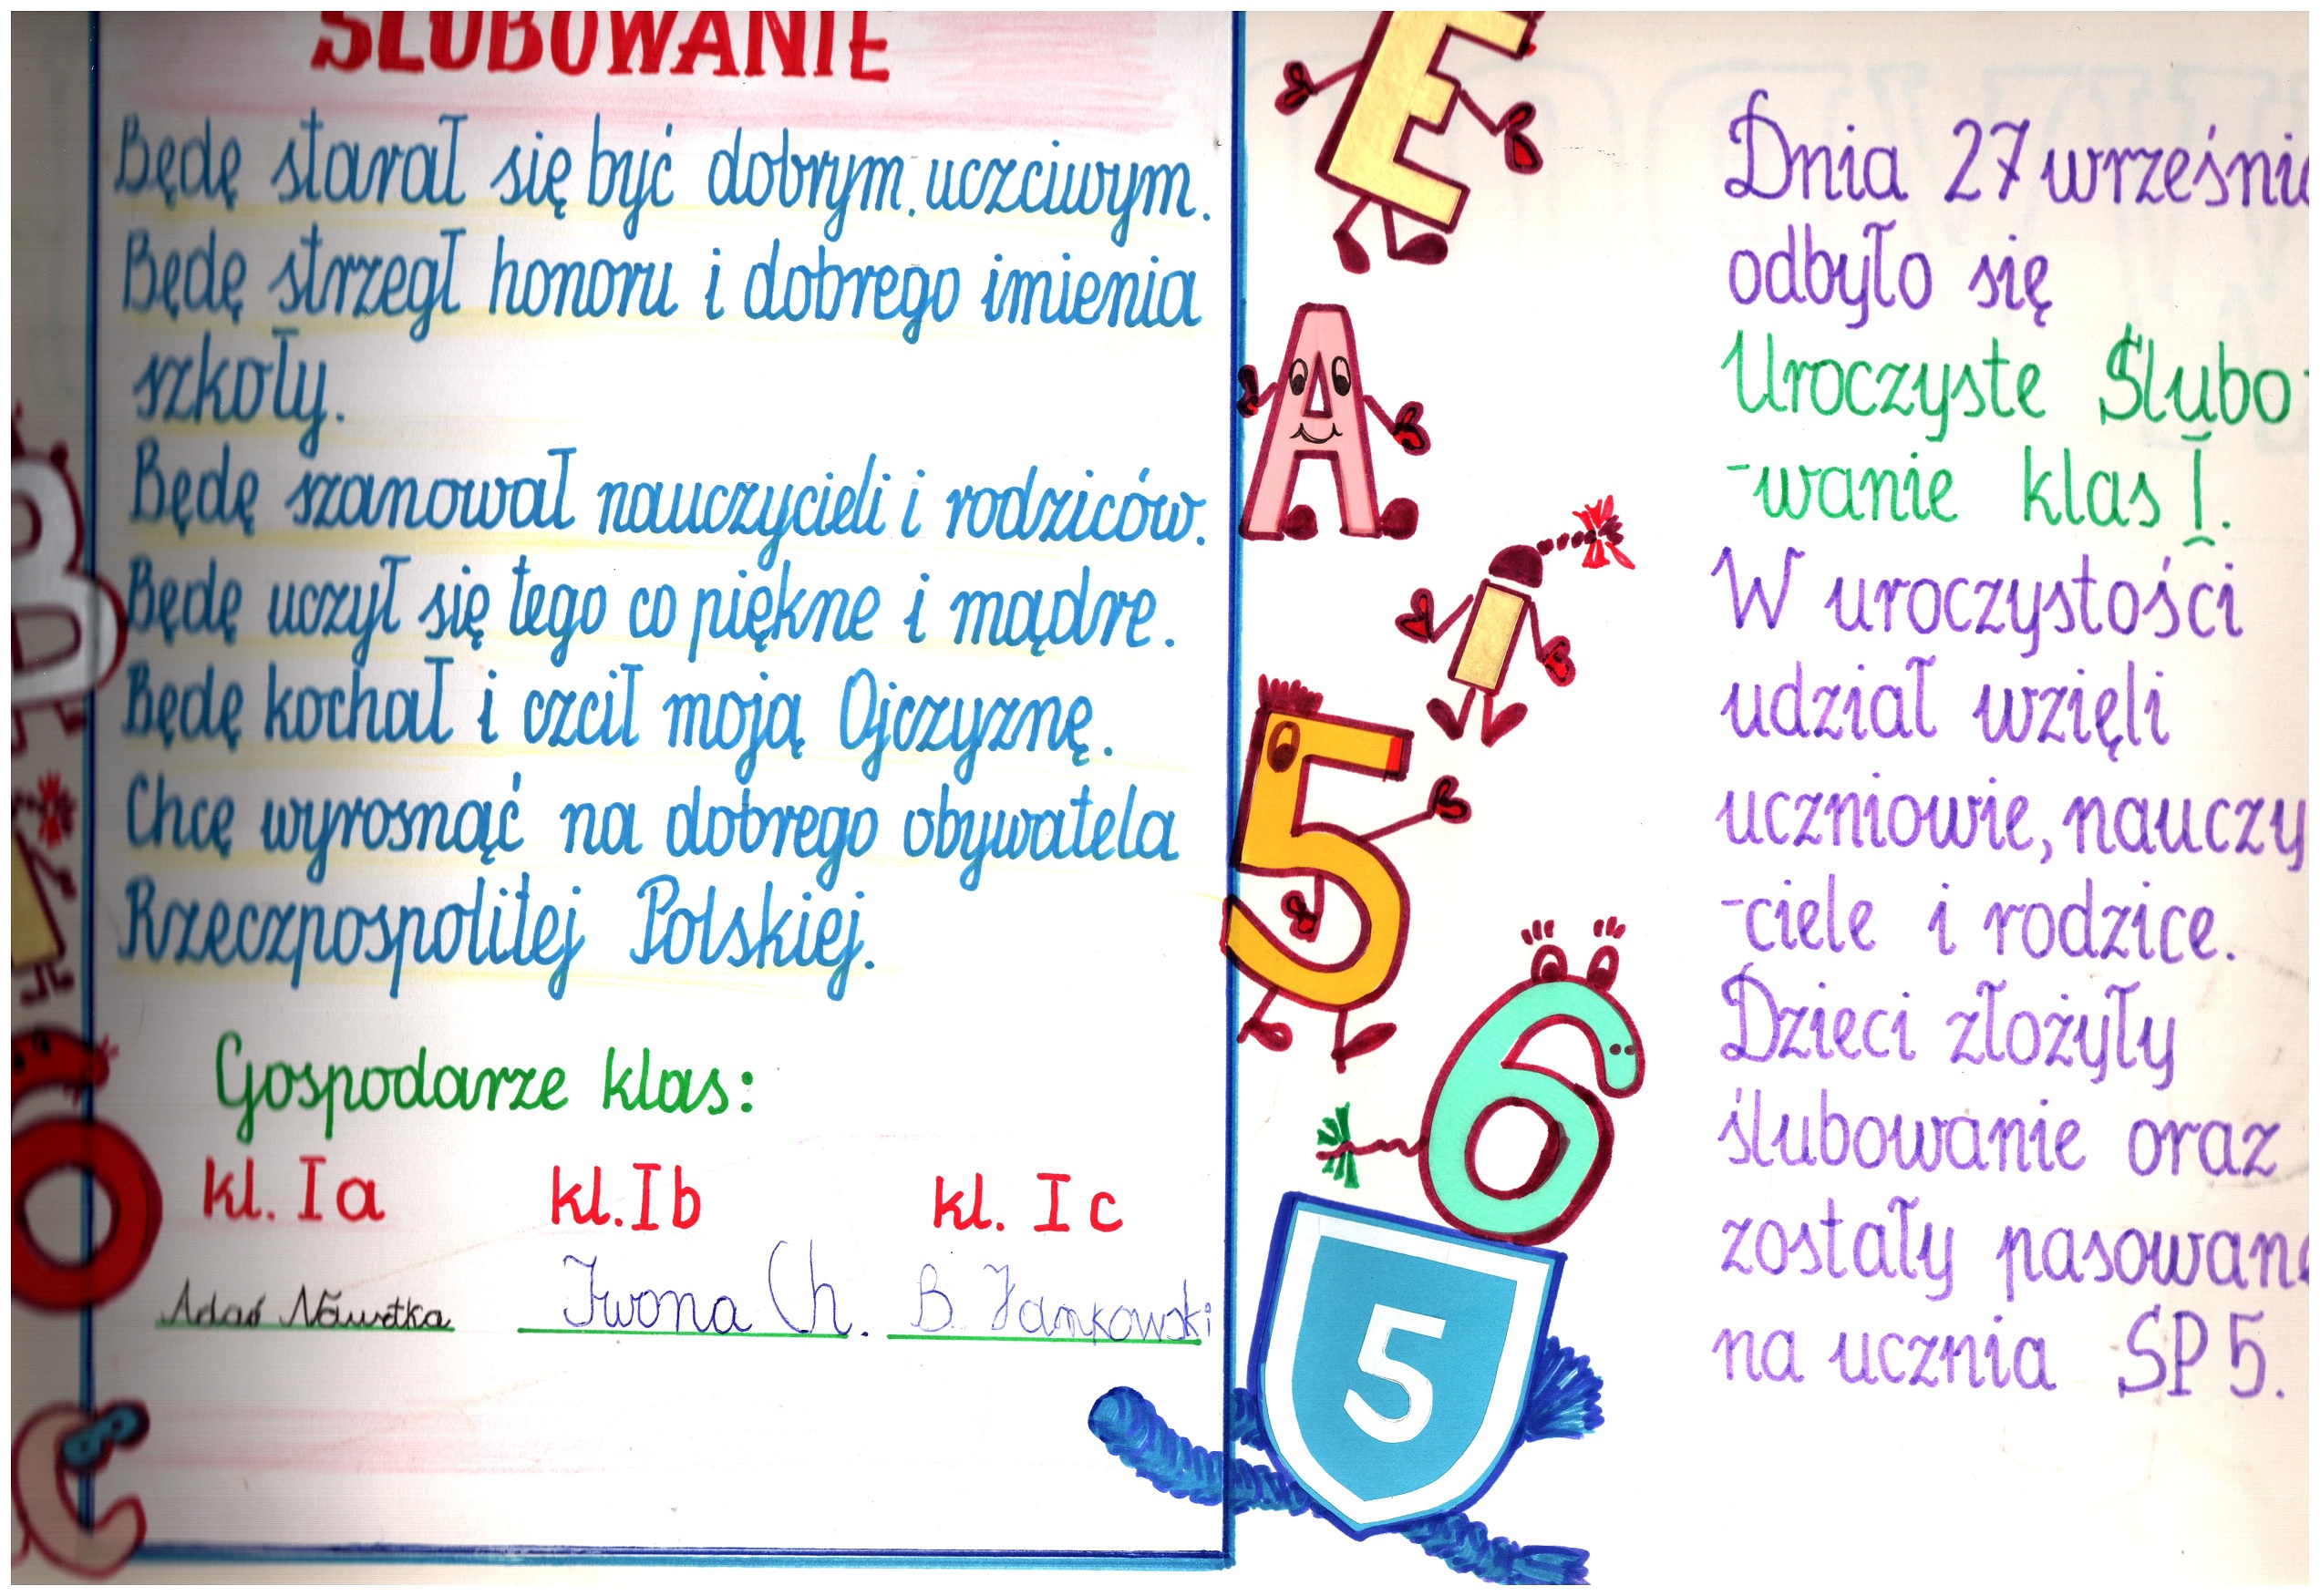 ŚLUBOWANIE
Będę starał się być dobrym, uczciwym.
Będę strzegł honoru i dobrego imienia
szkoły.
Będę szanował nauczycieli i rodziców.
Będę uczył się tego co piękne i mądre.
Będę kochał i czcił moją Ojczyznę.
Chcę wyrosnąć na dobrego obywatela
Rzeczpospolitej Polskiej.
Gospodarze klas:
kl. Ia kl. Ib kl. Ic
Iwona Ch. B.
E
A
5
6
5
Dnia 27 wrześni
odbyło się
Uroczyste Ślubo-
-wanie klas I.
W uroczystości
udział wzięli
uczniowie, nauczy
-ciele i rodzice.
Dzieci złożyły
ślubowanie oraz
zostały pasowan
na ucznia SP 5.